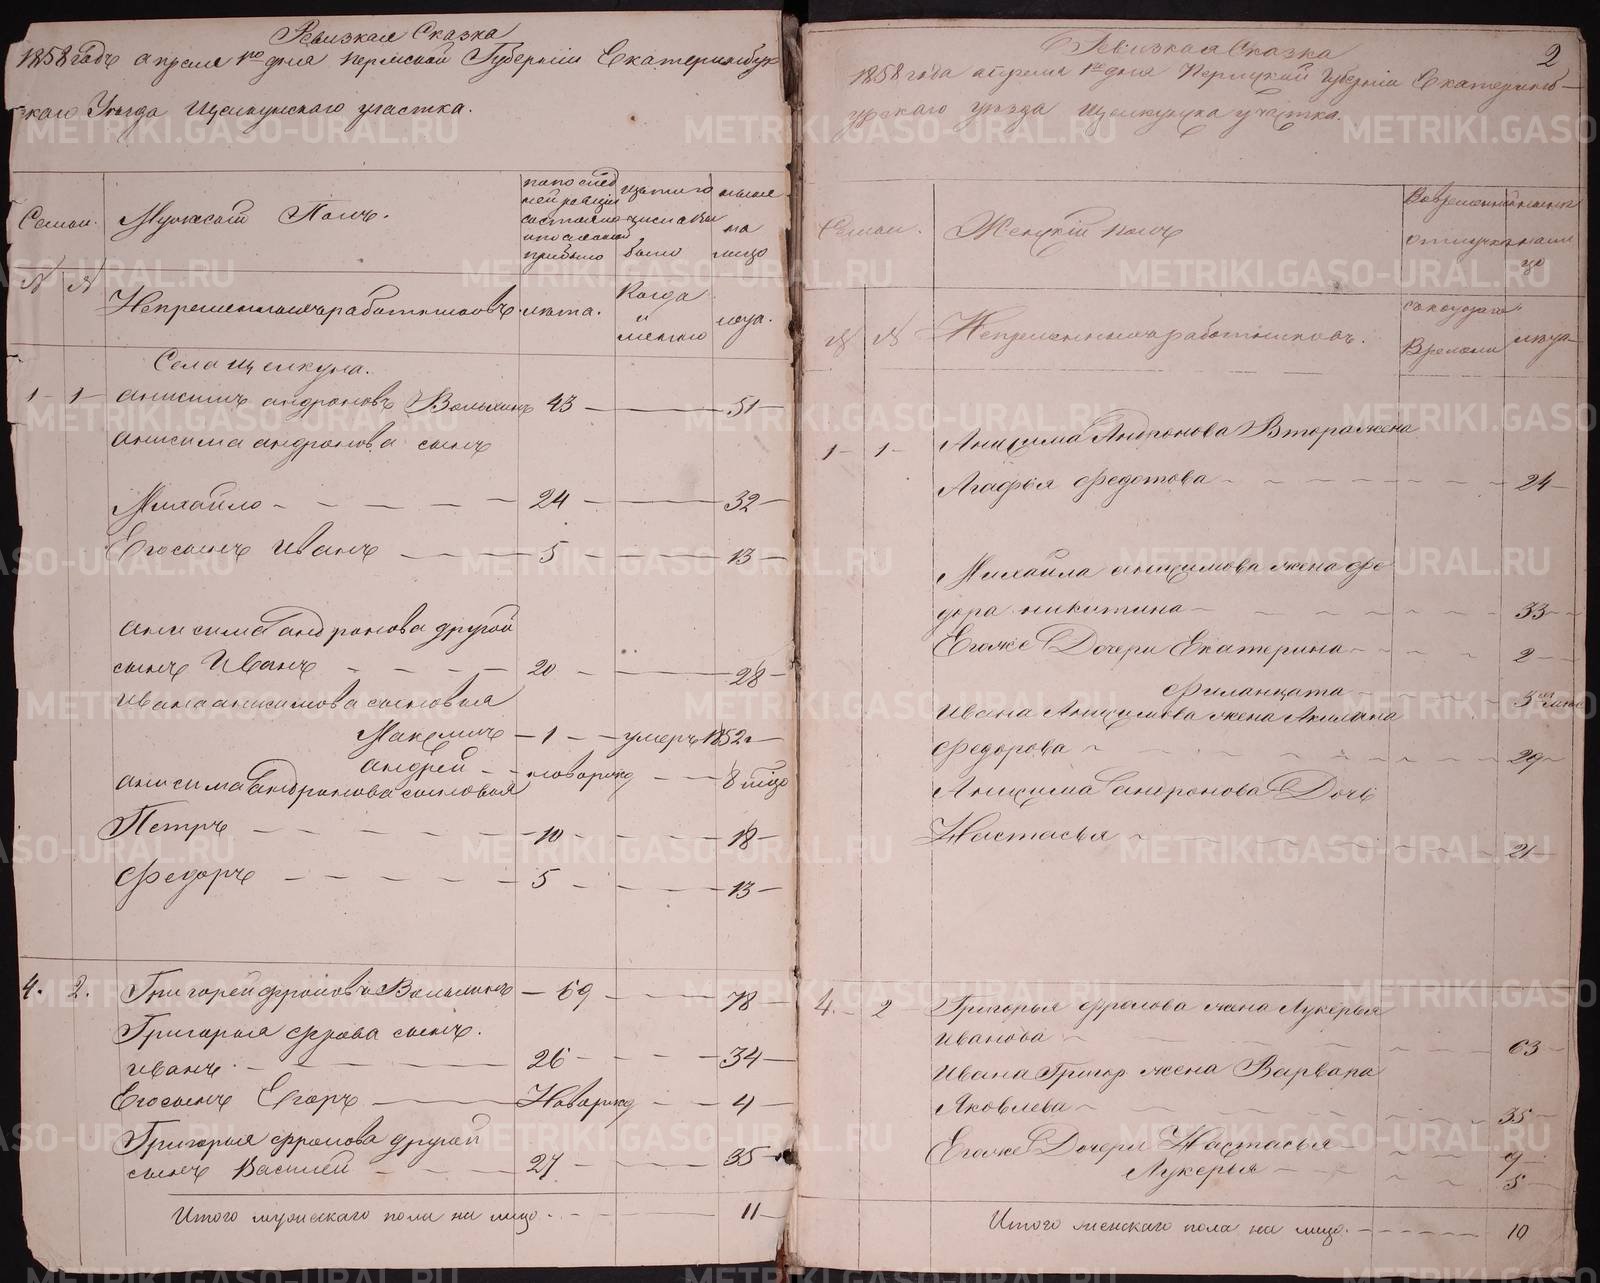 Ревизкая Сказка
1858 года апреля 1го дня Пермской Губернии Екатеринбур
скаго Уезда Щелкунскаго участка.
Семьи. Мужеской Полъ.
по послед
ней ревизии
состояло
и после оной
прибыло
изъ того
числа вы
было
ныне
на
лицо
№ №
Непременныхъ работниковъ. лета.
Когда
и
именно
лета.
Села Щелкуна.
1 - 1 - Анисимъ Андроновъ Волынинъ 43 — — 51 —
Анисима Андронова сынъ
Михайло - - - - 24 — — 32 —
Его сынъ Иванъ — — 5 — — 13 —
Анисима Андронова другой
сынъ Иванъ - - - - 20 — — 28 —
Ивана Анисимова сыновья
Максимъ — 1 — умеръ 1852 г —
Андрей - - новорожд — — 8 мцо
Анисима Андронова сыновья
Петръ - - - - - 10 - - - 18 —
Федоръ - - - - 5 - - - 13 —
4. 2. Григорей Фроловъ Волынинъ — 69 - - - 78 —
Григорья Фрова сынъ.
Иванъ. - — — 26 - - - 34 —
Его сынъ Егоръ — — Новорожд — — 4 —
Григорья Фролова другой
сынъ Василей - - - 27 - - - 35 —
Итого мужескаго пола на лицо. - - 11 —
2
Ревизкая Сказка
1858 года апреля 1го дня Пермской Губернiи Екатеринб—
урскаго уезда Щелкунска участка.
Семьи. Женскiй полъ
Во временной
отлучке
ныне
на ли
цо
№ № Непременныхъ работниковъ.
съ котораго
Времени
лета
1 - 1 - Анисима Андронова Вторая жена
Агафья Федотова - - - - 24 —
Михайла Анисимова жена Фе
дора Никитина - - - - 33 - -
Егоже Дочери Екатерина - - - 2 —
Ивана Анисимова жена Акилина
Федорова - - - - - 29 -
Анисима Андронова Дочь
Настасья - - - - - 21 —
4. - 2 Григорья Фролова жена Лукерья
Иванова - - - - - 63 —
Ивана Григор жена Варвара
Яковлева - - - - - 35 —
Егоже Дочери Настасья - - - 9 —
Лукерья - - - 5 —
Итого женскаго пола на лицо. - - - - 10
METRIKI.GASO-URAL.RU